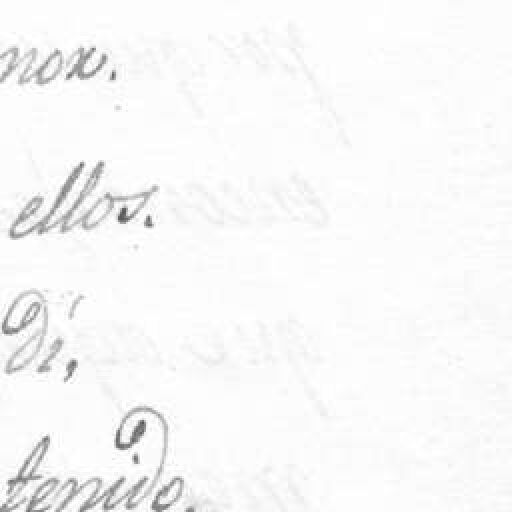 nox.
ellos.
di,
tenido.